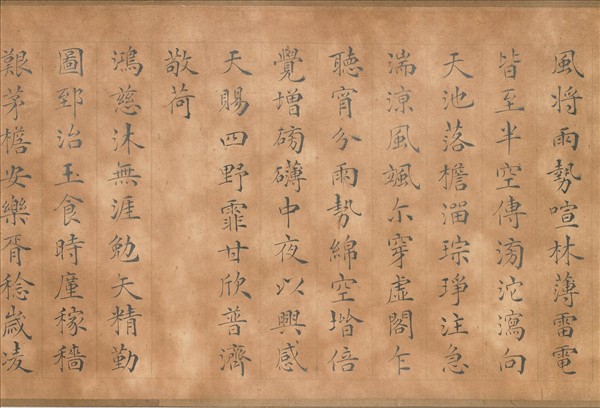 風將雨勢喧林薄雷電
皆至半空傳滂沱瀉向
天池落檐溜琮琤注急
湍涼風颯尓穿虛閣乍
聽宵分雨勢綿空堦倍
覺增磅礴中夜以興感
天賜四野霏甘欣普濟
敬荷
鴻慈沐無涯勉矢精勤
圖郅治玉食時廑稼穡
艱茅檐安樂胥稔歲凌